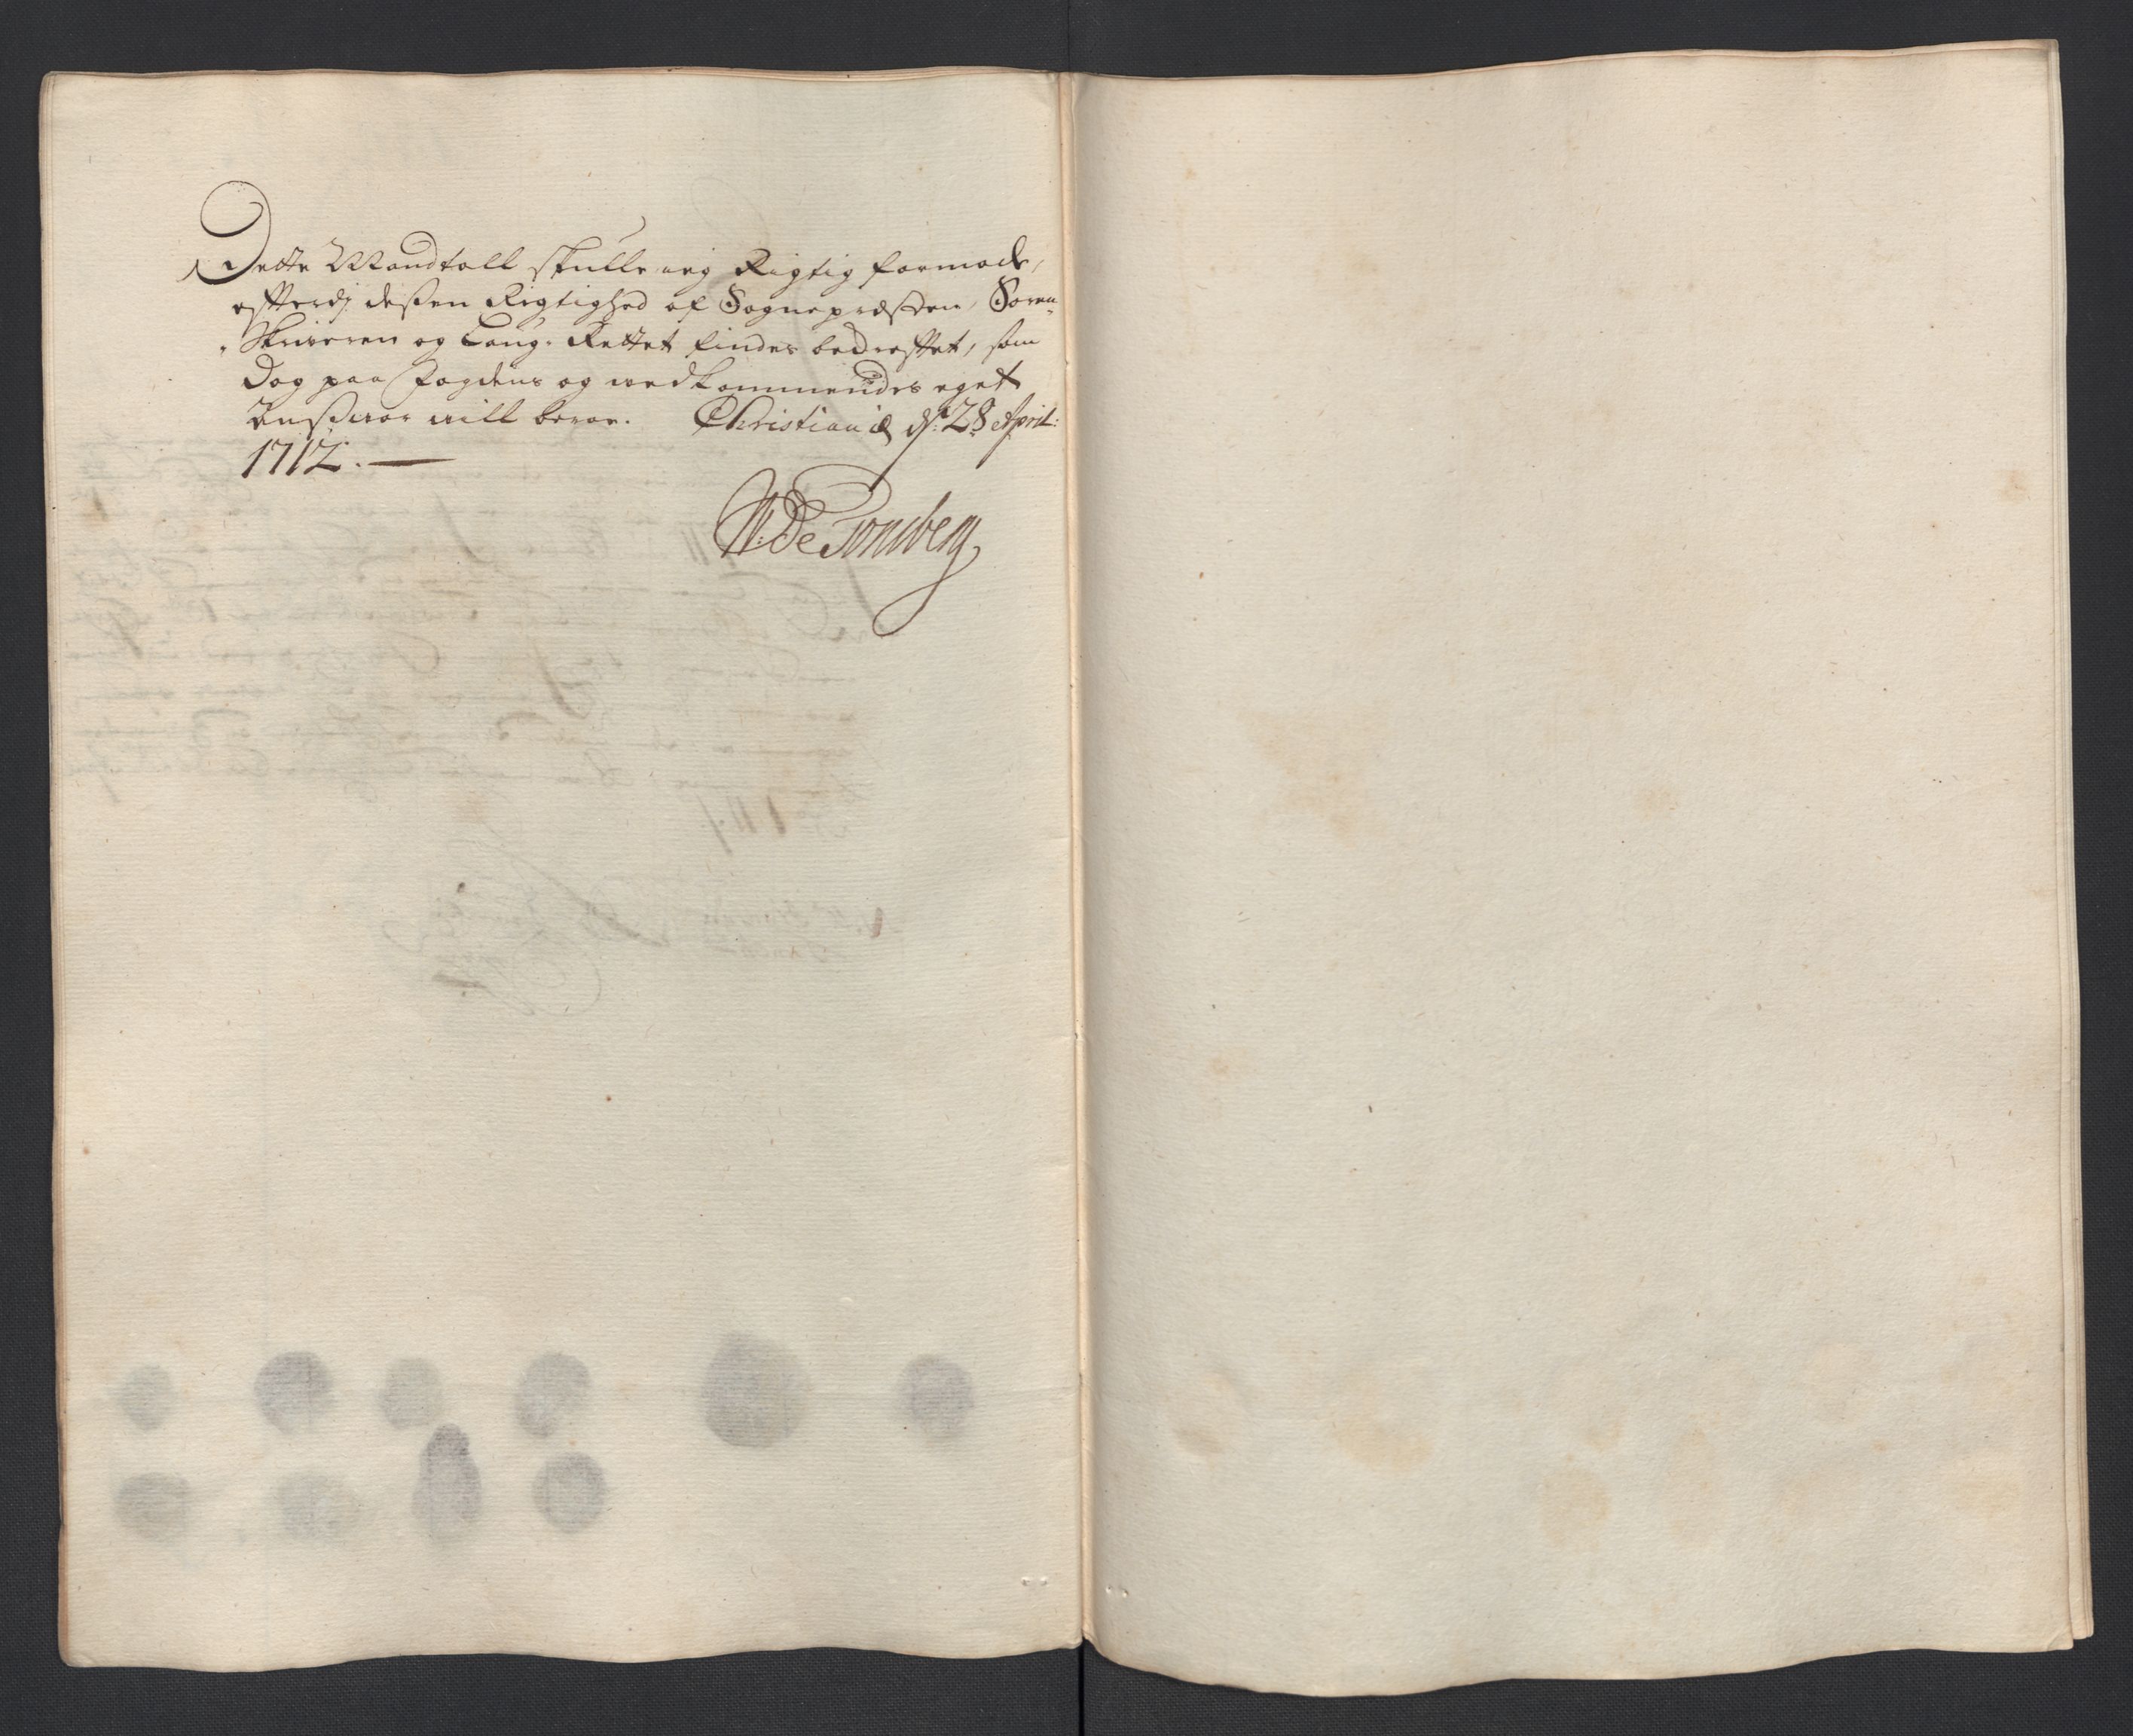 Dette Mandtall skulle ieg Rigtig formode,
efftterdj deßen Rigtighed af Sognepræsten, Soren-
Skriveren og Laug-Rettet findes bekrefftet, som
dog paa Fogdens og vedkommendes eget
Ansvar vill beroe. Christianiæ d: 28 April:
1712.
W: De Tonsberg